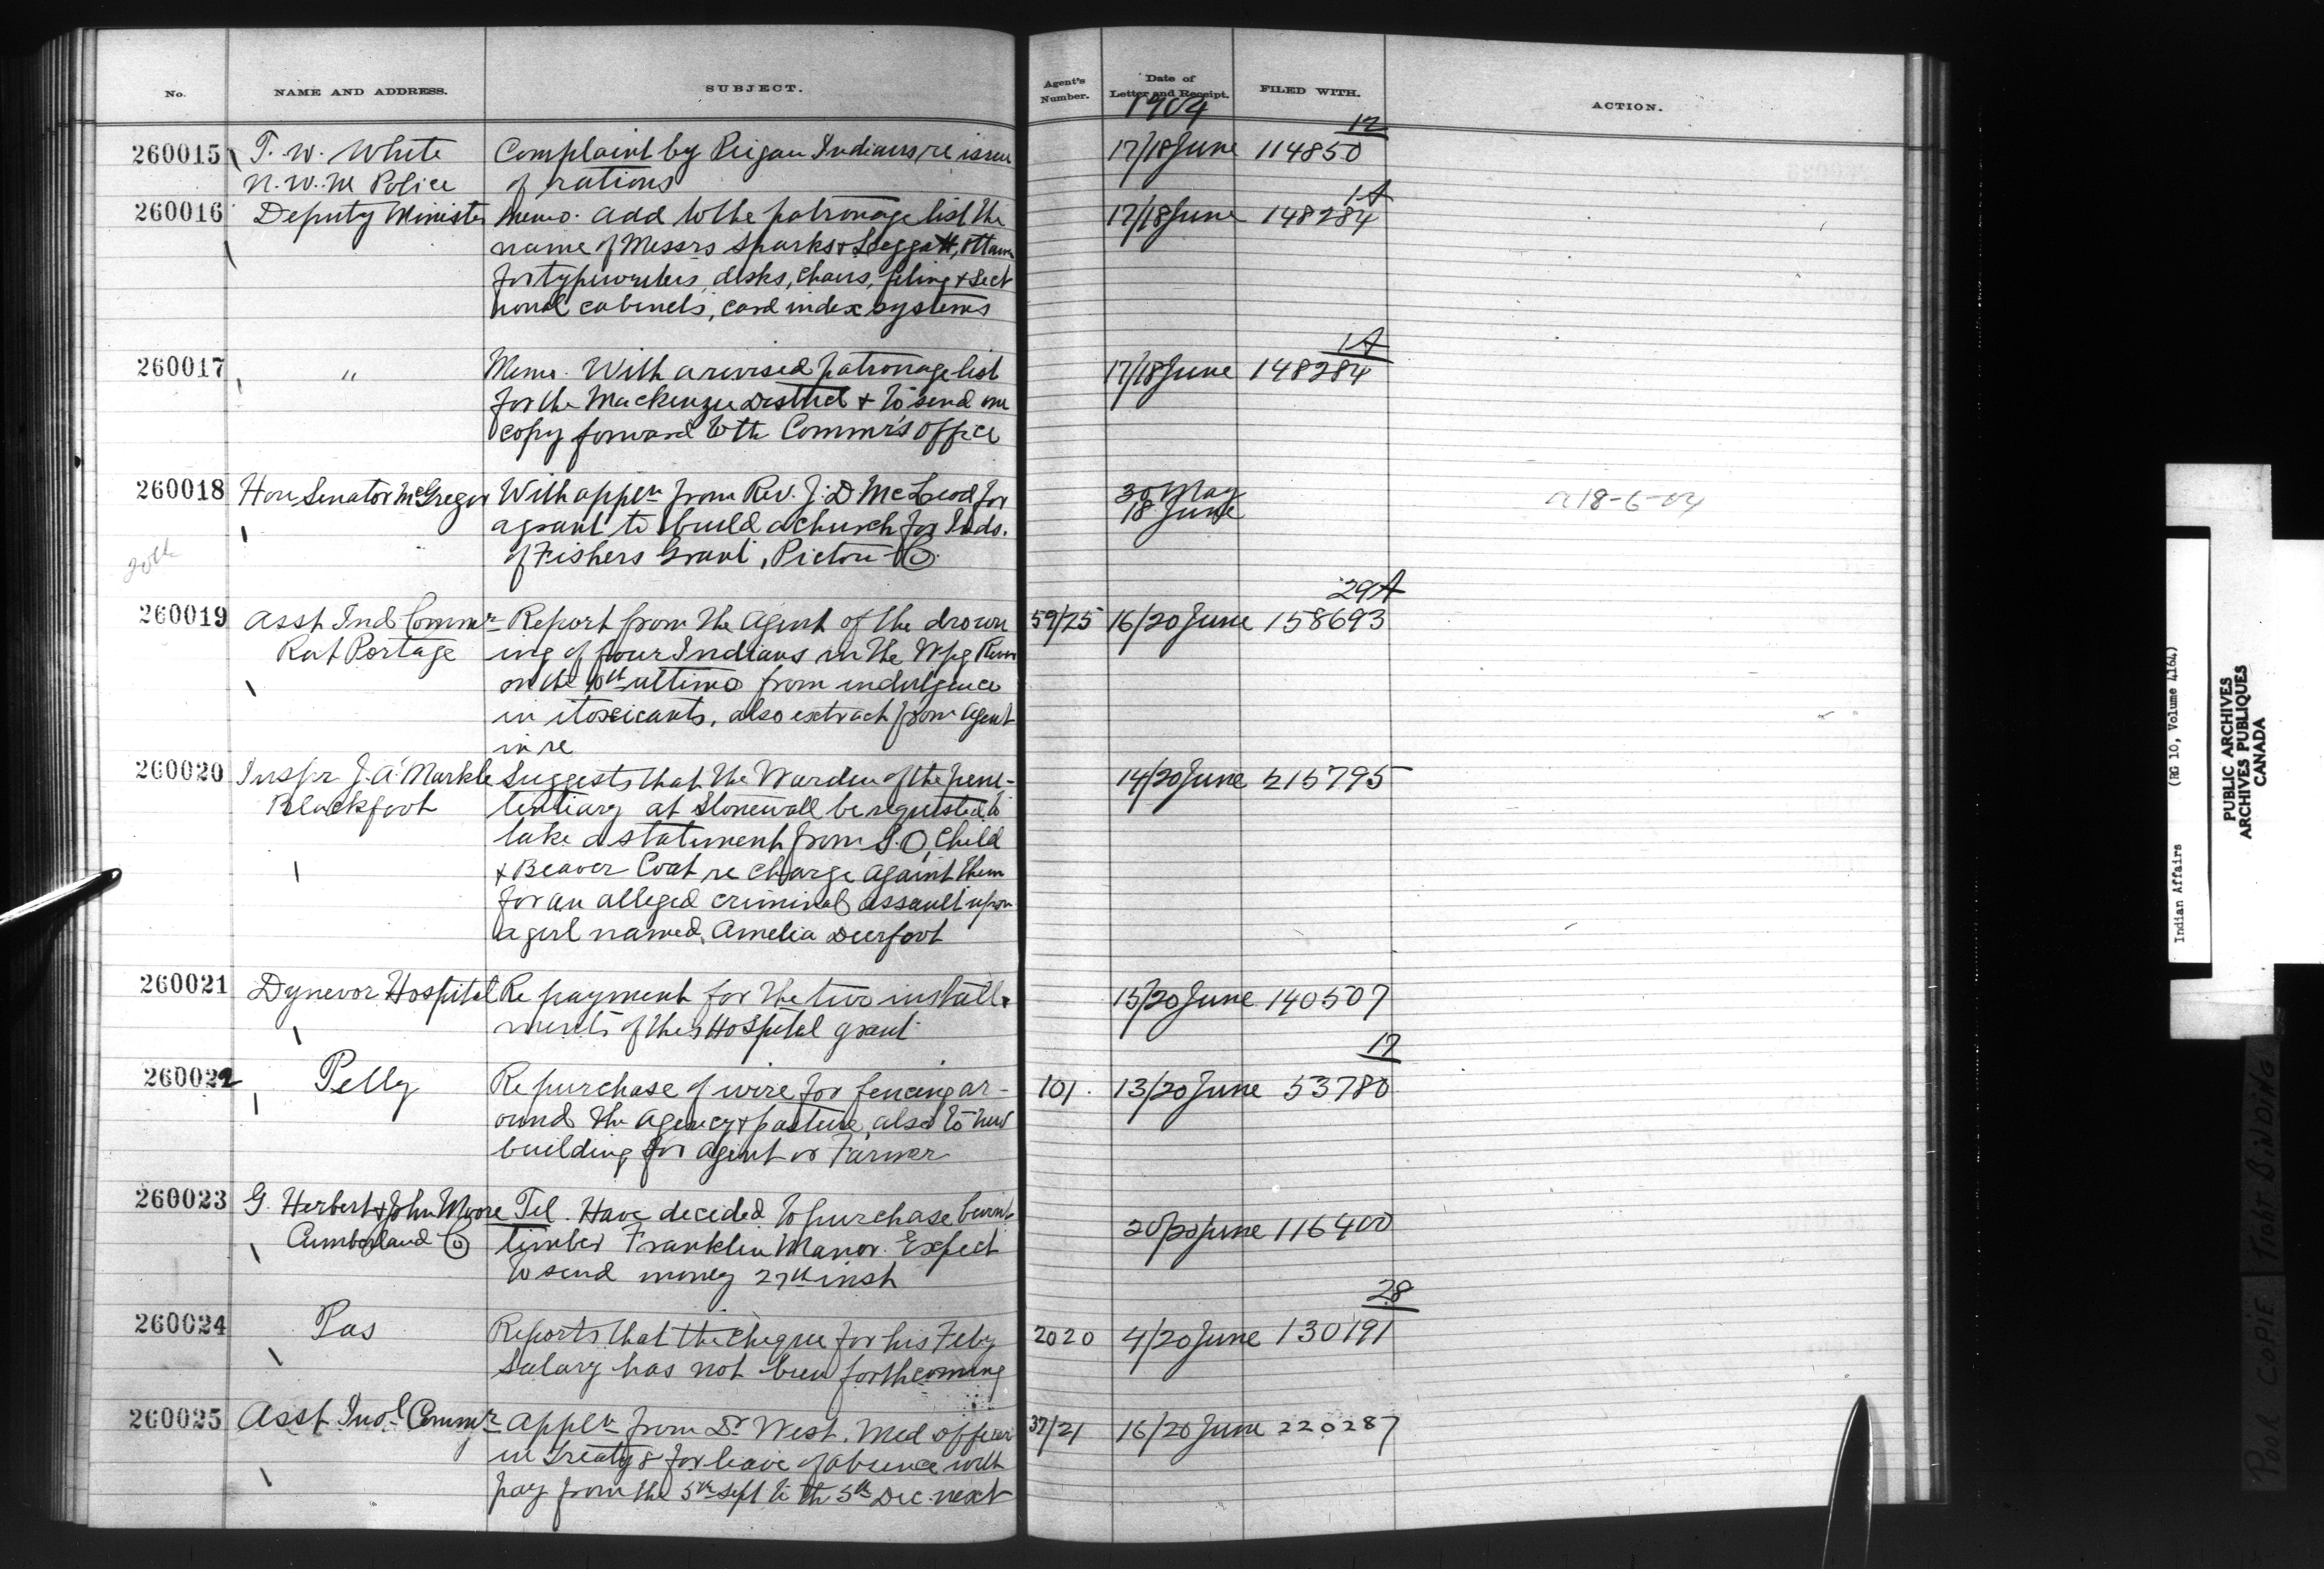 No. NAME AND ADDRESS. SUBJECT. Agent's Number. Date of Letter and Receipt. FILED WITH. ACTION.
1904
12
260015 T. W. White Complaint by Peigan Indians re issue 17/18 June 114850
N. W. M Police of rations
1A
260016 Deputy Minister Memo. Add to the patronage list the 17/18 June 148284
name of Messrs Sparks & Leggatt, Ottawa
for typewriters, desks, chairs, filing & sect
ional cabinets, card index systems
1A
260017 " Memo. With a revised patronage list 17/18 June 148284
for the Mackenzie District & to send one
copy forward to th Commr's office
260018 Hon Senator McGregor With appln from Rev. J. D McLeod for 30 May
a grant to build a church for Inds. 18 June 18-6-04
20th of Fishers Grant, Pictou Co.
29A
260019 Asst Ind Commr Report from the Agent of the drown 59/25 16/20 June 158693
Rat Portage ing of four Indians in the Wpg River
on the 10th ultimo from indulgence
in itoxicants, also extract from Agent
in re
260020 Inspr J. A. Markle Suggests that the Warden of the peni- 14/20 June 215795
Blackfoot tentiary at Stonewall be requested to
take a statement from S. O. Child
& Beaver Coat re charge against them
for an alleged criminal assault upon
a girl named, Amelia Deerfoot
260021 Dynevor Hospital Re payment for the two install- 15/20 June 140507
ments of their Hospital grant
17
260022 Pelly Re purchase of wire for fencing ar- 101. 13/20 June 53780
ound the agency & pasture, also to new
building for Agent or Farmer
260023 G. Herbert & John Moore Tel. Have decided to purchase burnt
Cumberland Co timber Franklin Manor. Expect 20/20 June 116400
to send money 27th inst
28
260024 Pas Reports that the cheque for his Feby 2020 4/20 June 130191
salary has not been forthcoming
260025 Asst Indl Commr Appln from Dr West. Med officer 37/21 16/20 June 220287
in Treaty 8 for leave of absence with
pay from the 5th Sept to th 5th Dec. next
Indian Affairs (RG 10, Volume 4164)
PUBLIC ARCHIVES
ARCHIVES PUBLIQUES
CANADA
POOR COPIE TIGHT BINDING